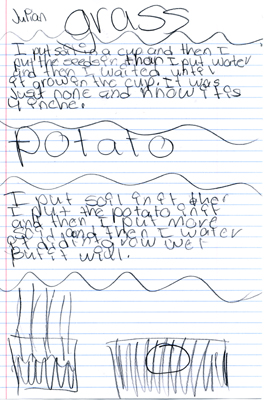 Julian
grass
I put soil in a cup and then I
put the seeds in. than I put water
and then I waited until
it grow in the cup. It was
just none and know it is
4 inche.
Potato
I put soil in it then
I put the potato in it
and then I put more
soil and then I water
it didint grow wet
But it will.